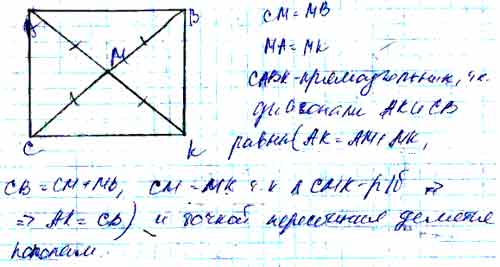 A
B
M
C
K
CM = MB
MA = MK
CABK - прямоугольник, т.к.
диагонали AK и CB
равны (AK = AM + MK,
CB = CM + MB, CM = MK т.к Δ CMK - р/б ⇒
⇒ AK = CB) и точкой пересечения делятся
пополам.